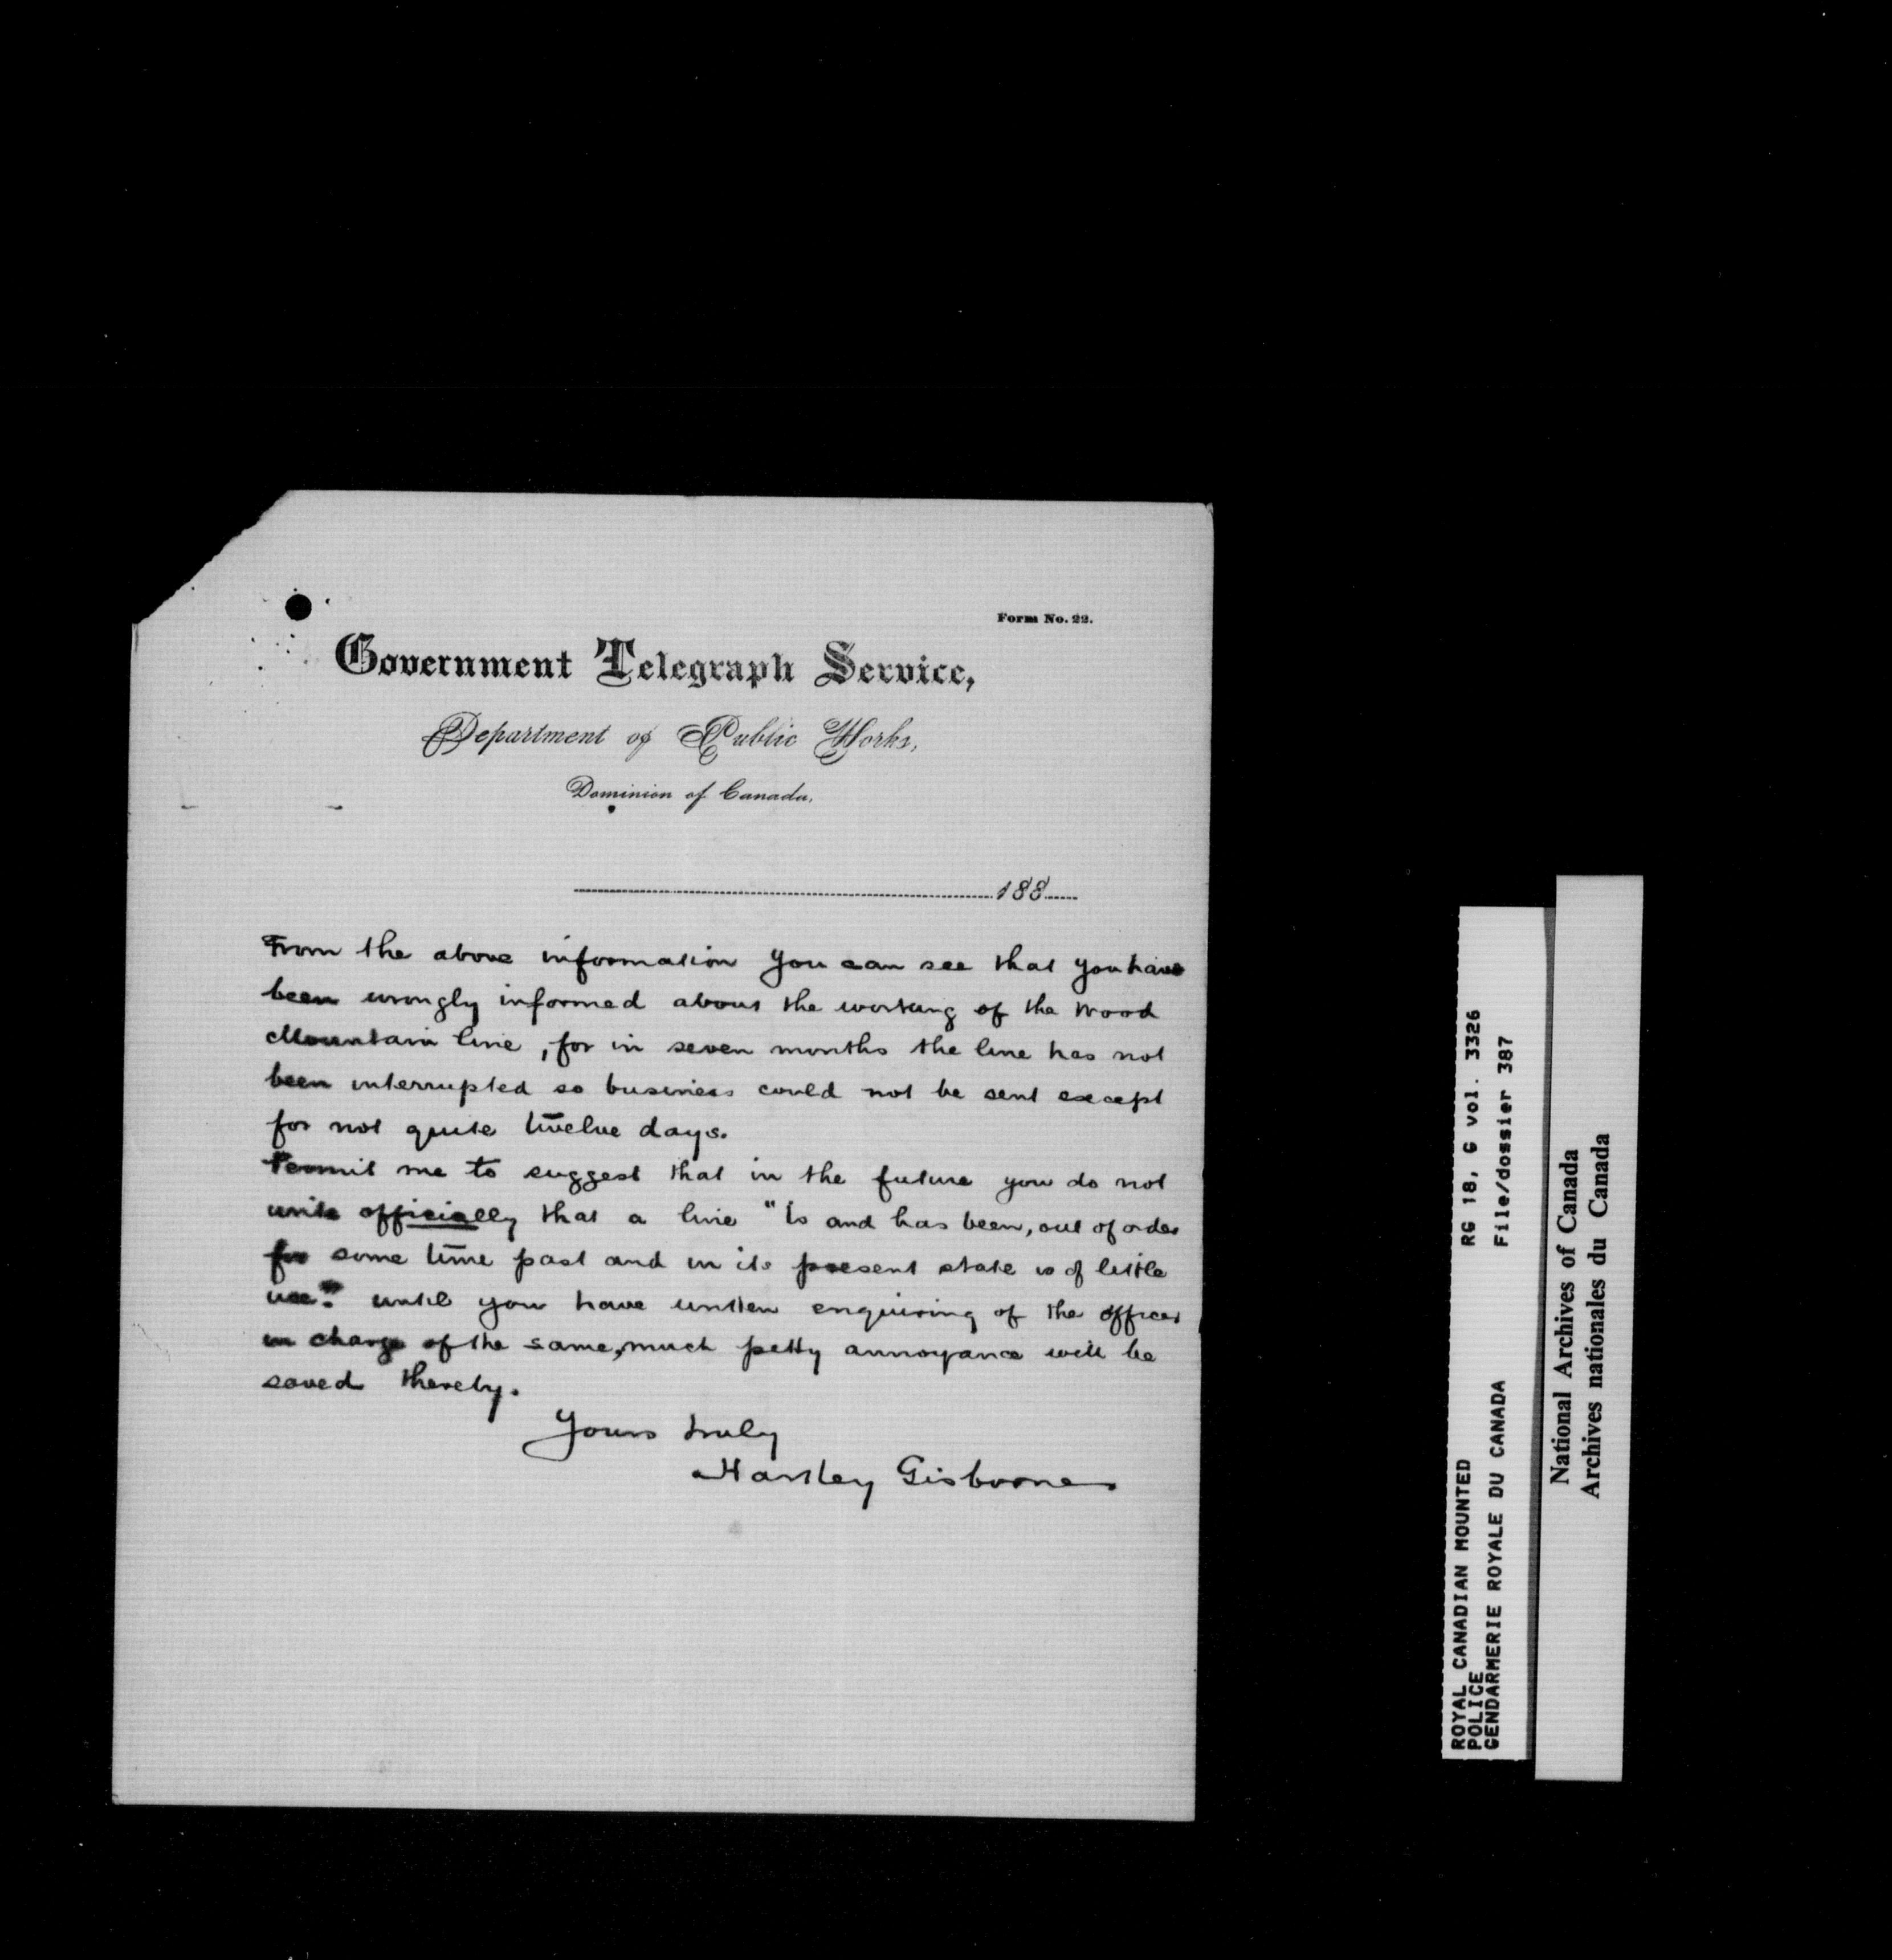 Form No. 22.
Government Telegraph Service,
Department of Public Works,
Dominion of Canada,
188
From the above information you can see that you have
been wrongly informed about the working of the Wood
Mountain line, for in seven months the line has not
been interrupted so business could not be sent except
for not quite twelve days.
Permit me to suggest that in the future you do not
write officially that a line "Is and has been, out of order
for some time past and in its present state is of little
use" until you have written enquiring of the officer
in charge of the same, much petty annoyance will be
saved thereby.
Yours truly
Hartley Gisborne
ROYAL CANADIAN MOUNTED
POLICE
GENDARMERIE ROYALE DU CANADA
RG 18, G vol. 3326
File/dossier 387
National Archives of Canada
Archives nationales du Canada